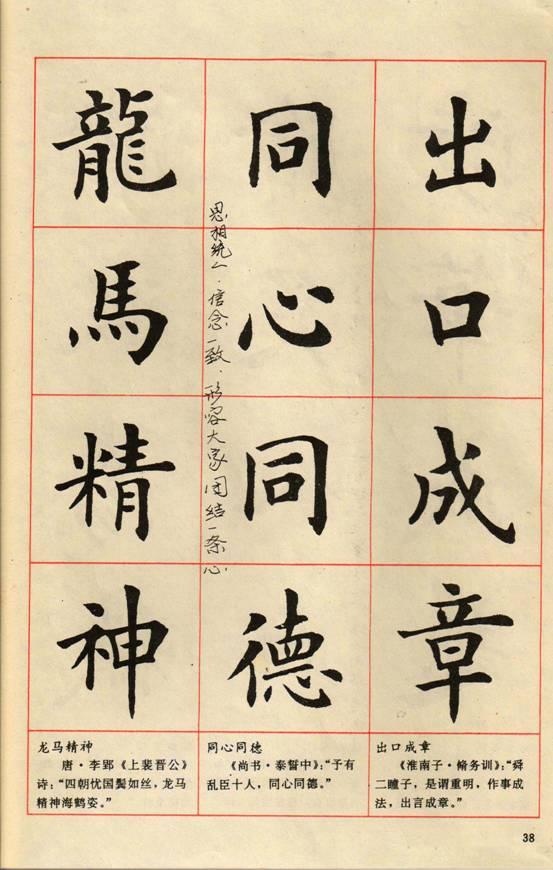 出口成章
同心同德
思相统一．信念一致．形容大家团结一条心．
龍馬精神
出口成章
《淮南子·脩务训》：“舜
二瞳子，是谓重明，作事成
法，出言成章。”
同心同德
《尚书·泰誓中》：“予有
乱臣十人，同心同德。”
龙马精神
唐·李郢《上裴晋公》
诗：“四朝忧国鬓如丝，龙马
精神海鹤姿。”
38